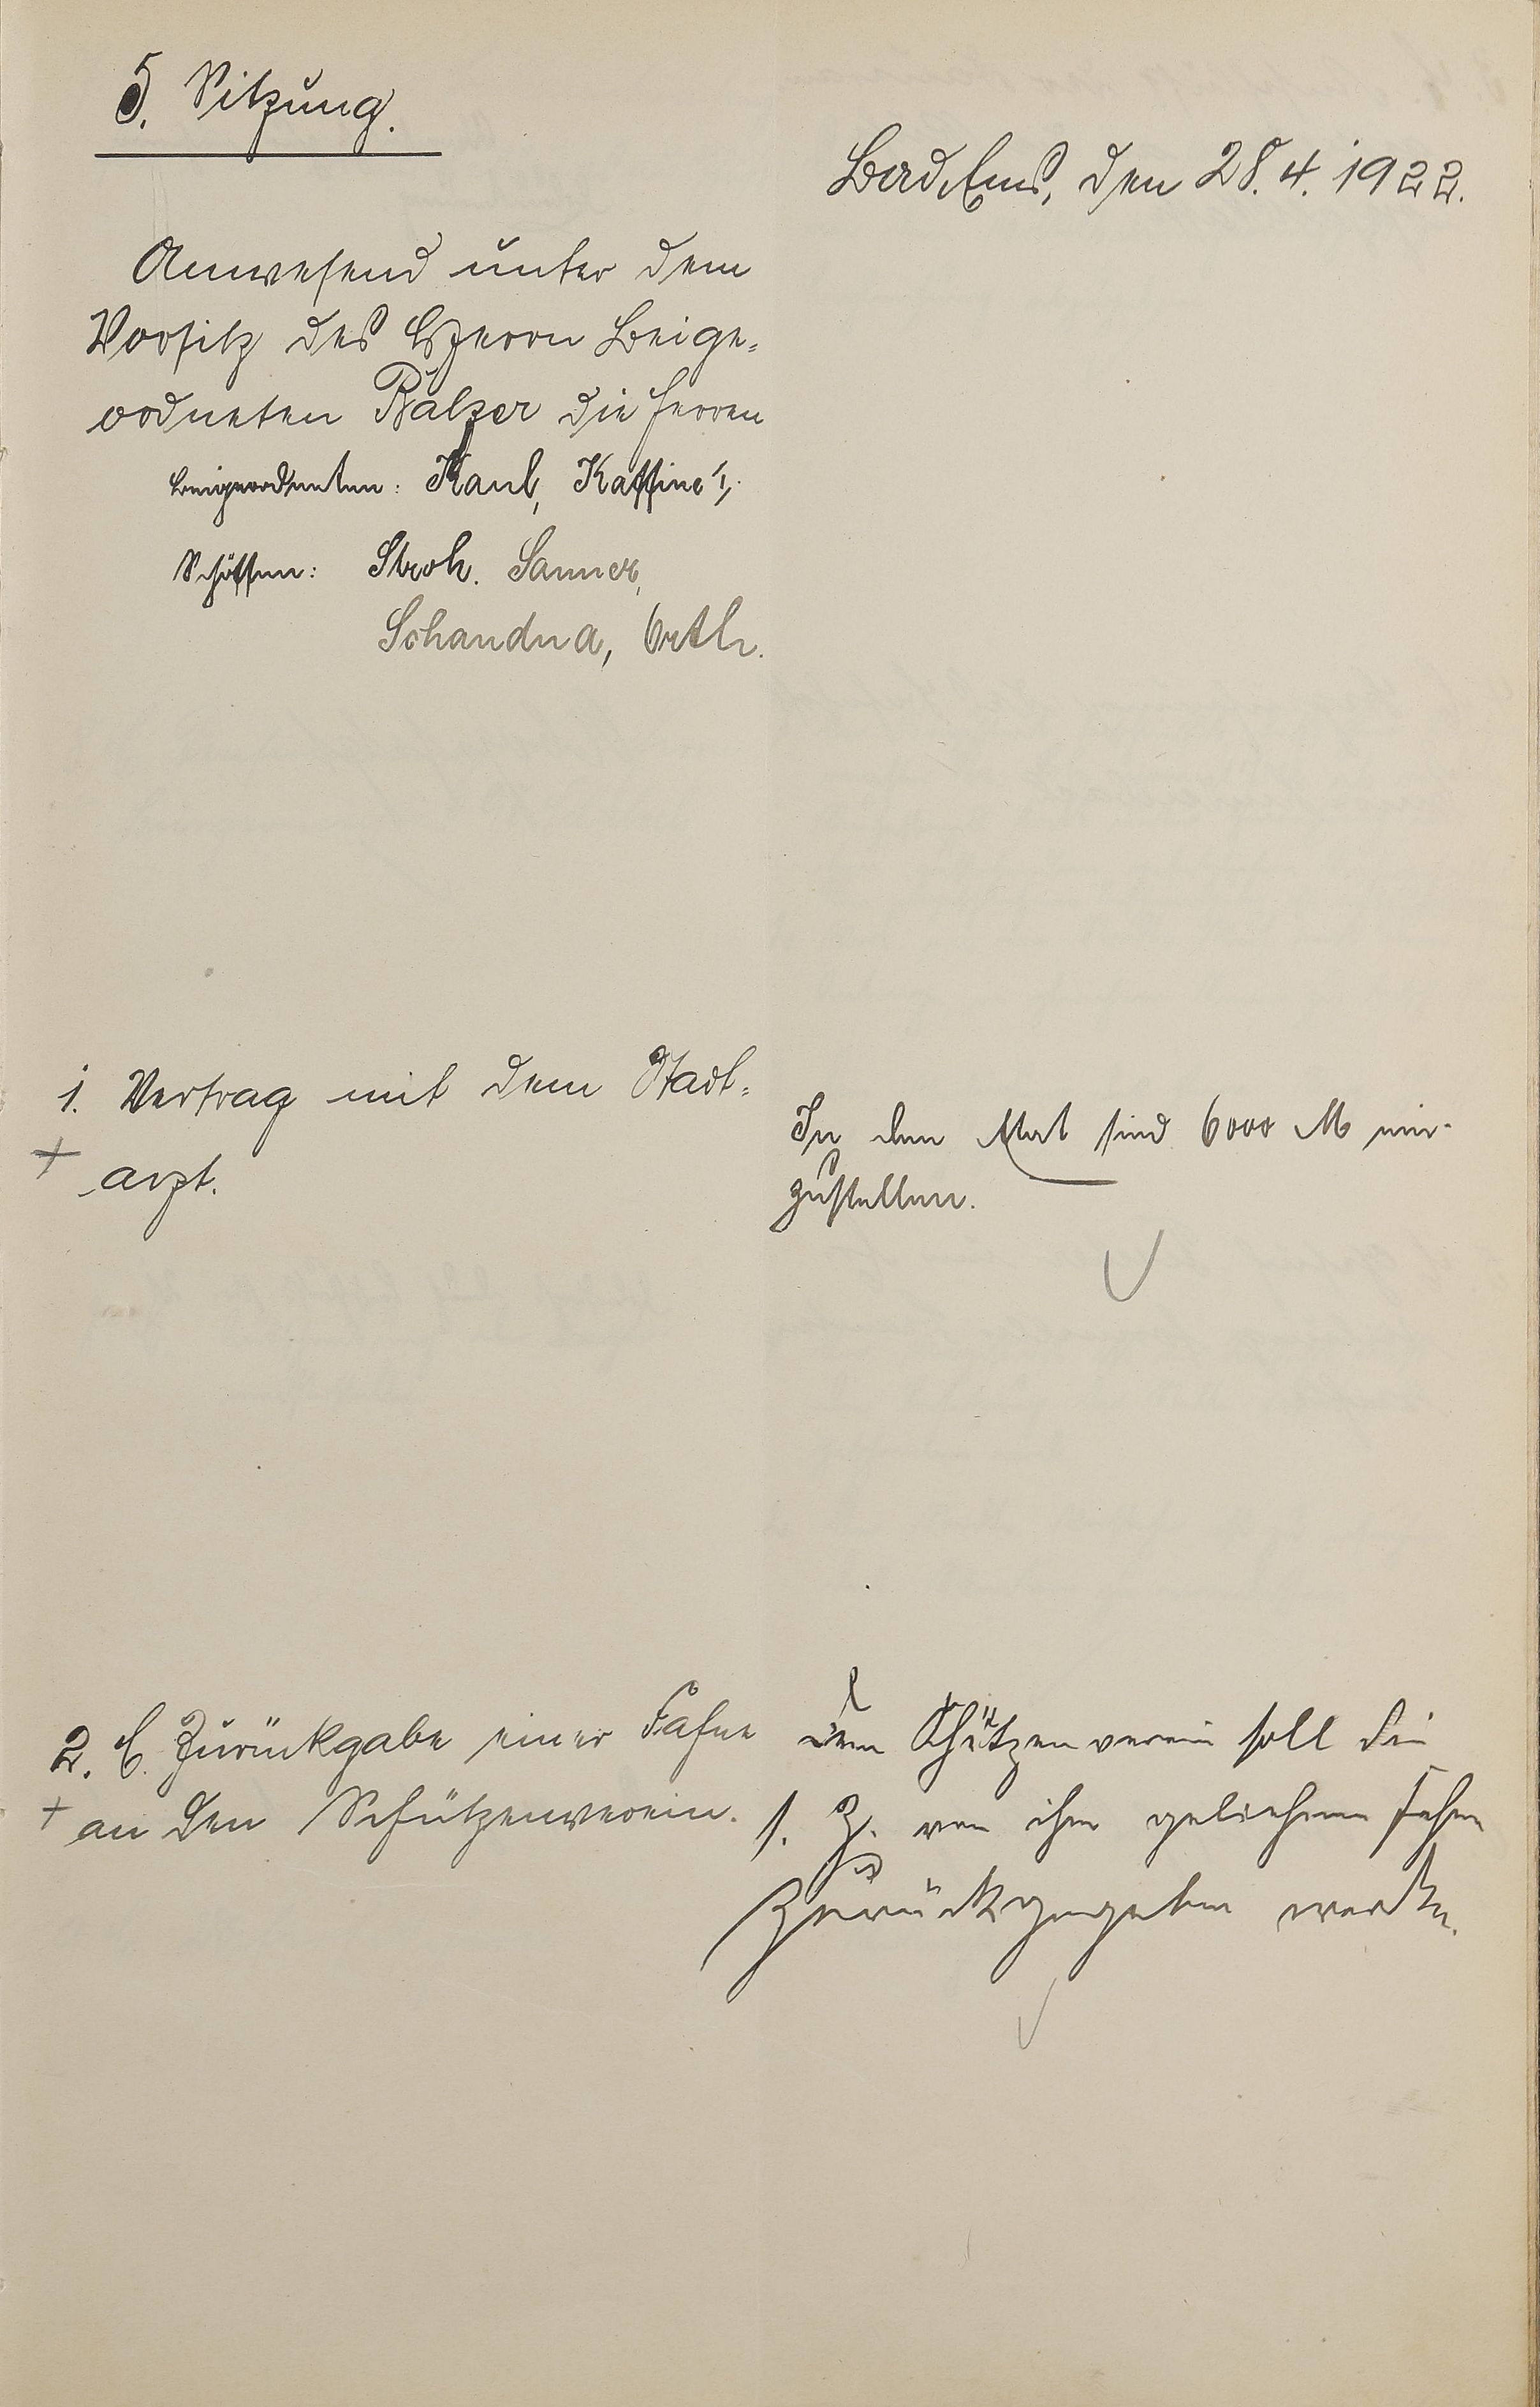 5. Sitzung.
Bad Ems, den 28.4.1922.
Anwesend unter dem
Vorsitz des Herrn Beige-
ordneten Balzer die Herren
Beigeordneten: Kaul, Kaffine',
Schöffen: Stroh. Sanner,
Schandua, Orth.
1. Vertrag mit dem Stadt-
arzt.
In den Etat sind 6000 M ein-
zustellen.
2. C. Zurückgabe einer Fahne
an den Schützenverein.
Dem Schützenverein soll die
s. Z. von ihm geliehene Fahne
zurückgegeben werden.